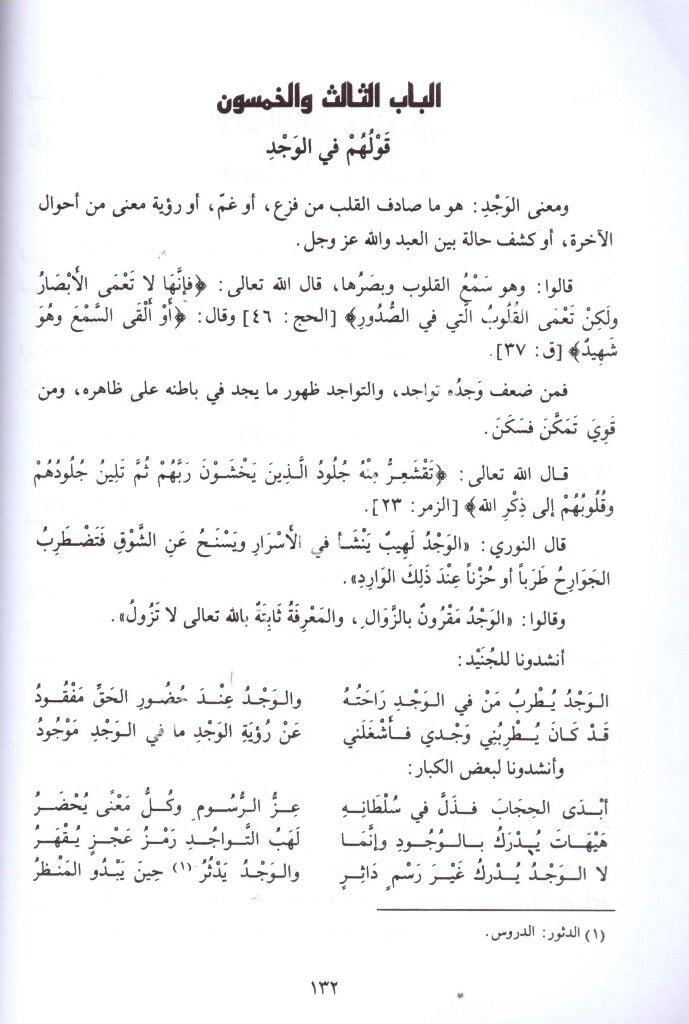 الباب الثالث والخمسون
قَوْلُهُمْ في الوَجْدِ
ومعنى الوَجْدِ: هو ما صادف القلب من فزع، أو غمّ، أو رؤية معنى من أحوال
الآخرة، أو كشف حالة بين العبد والله عز وجل.
قالوا: وهو سَمْعُ القلوب وبصَرُها، قال الله تعالى: ﴿فإنَّهَا لا تَعْمَى الأَبْصَارُ
ولَكِنْ تَعْمَى القُلُوبُ الَّتي في الصُّدُورِ﴾ [الحج: ٤٦] وقال: ﴿أَوْ أَلْقَى السَّمْعَ وهُوَ
شَهِيدٌ﴾ [ق: ٣٧].
فمن ضعف وَجدُه تواجد، والتواجد ظهور ما يجد في باطنه على ظاهره، ومن
قَوِيَ تَمَكَّنَ فسَكَنَ.
قـال الله تعالى: ﴿تَقْشَعِرُّ مِنْهُ جُلُودُ الَّـذِينَ يَخْشَوْنَ رَبَّهُمْ ثُمَّ تَلِينُ جُلُودُهُمْ
وقُلُوبُهُمْ إلى ذِكْرِ الله﴾ [الزمر: ٢٣].
قال النوري: «الوَجْدُ لَهِيبٌ يَنْشَـأ في الأَسْرَارِ ويَسْنَـحُ عَنِ الشَّوْقِ فَتَضْطَرِبُ
الجَوَارِحُ طَرَباً أو حُزْناً عِنْدَ ذَلِكَ الوَارِدِ».
وقالوا: «الوَجْدُ مَقْرُونٌ بالزَّوَالِ، والمَعْرِفَةُ ثابِتَةٌ بالله تعالى لا تَزُولُ».
أنشدونا للجُنَيْد:
الـوَجْدُ يُـطْرِبُ مَنْ في الـوَجْدِ رَاحَتُـهُ والـوَجْـدُ عِنْـدَ حُضُـورِ الحَقِّ مَفْقُـودُ
قَـدْ كَـانَ يُـطْرِبُنِي وَجْـدي فـأَشْغَلَني عَنْ رُؤيَةِ الوَجْدِ ما في الـوَجْدِ مَوْجُودُ
وأنشدونا لبعض الكبار:
أبْـدَى الحِجَابَ فـذَلَّ في سُلْطَانِـهِ عِـزُّ الـرُّسُومِ وكُـلُّ مَعْنًى يُحْضَـرُ
هَيْهَاتَ يُـدْرَكُ بـالـوُجُـودِ وإنَّمَـا لَهَبُ التَّـواجُـدِ رَمْـزُ عَجْـزٍ يُـقْهَرُ
لا الـوَجْدُ يُـدْرِكُ غَيْـرَ رَسْمٍ دَاثِـرٍ والـوَجْدُ يَدْثُرُ (١) حِينَ يَبْدُو المَنْظَرُ
(١) الدثور: الدروس.
١٣٢